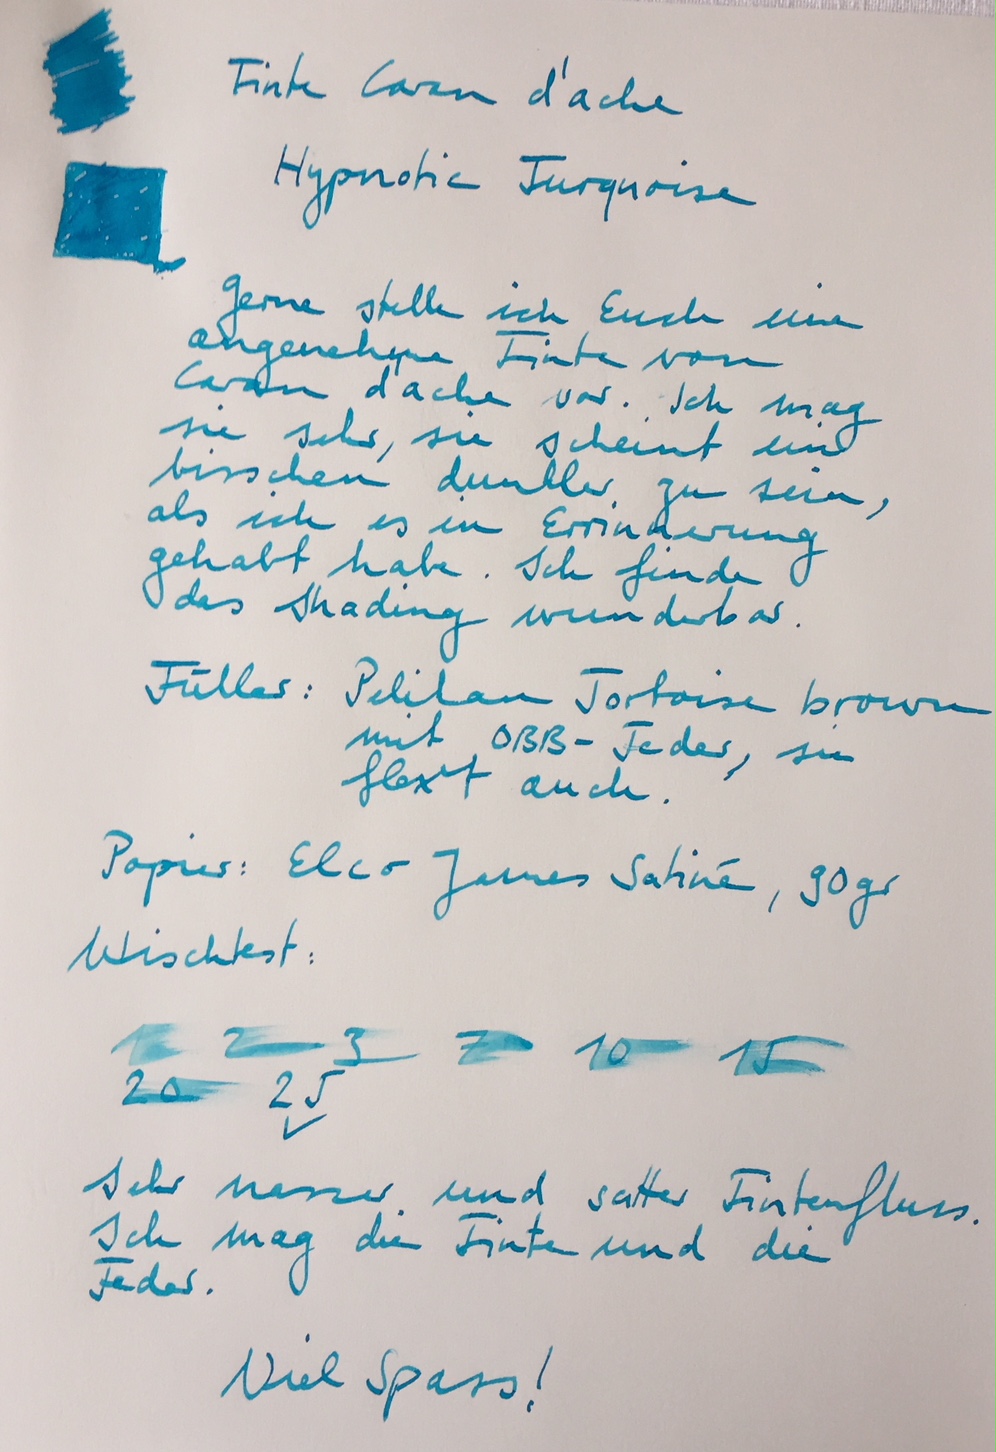 Tinte Caran d'ache
Hypnotic Turquoise
Gerne stelle ich Euch eine
angenehme Tinte von
Caran d'ache vor. Ich mag
sie sehr, sie scheint ein
bisschen dunkler zu sein,
als ich es in Errinnerung
gehabt habe. Ich finde
das Shading wunderbar.
Füller: Pelikan Tortoise brown
mit OBB-Feder, sie
flex't auch.
Papier: Elco James Satiné, 90gr
Wischtest:
1 2 3 7 10 15
20 25
✓
Sehr nasser und satter Tintenfluss.
Ich mag die Tinte und die
Feder.
Viel Spass!